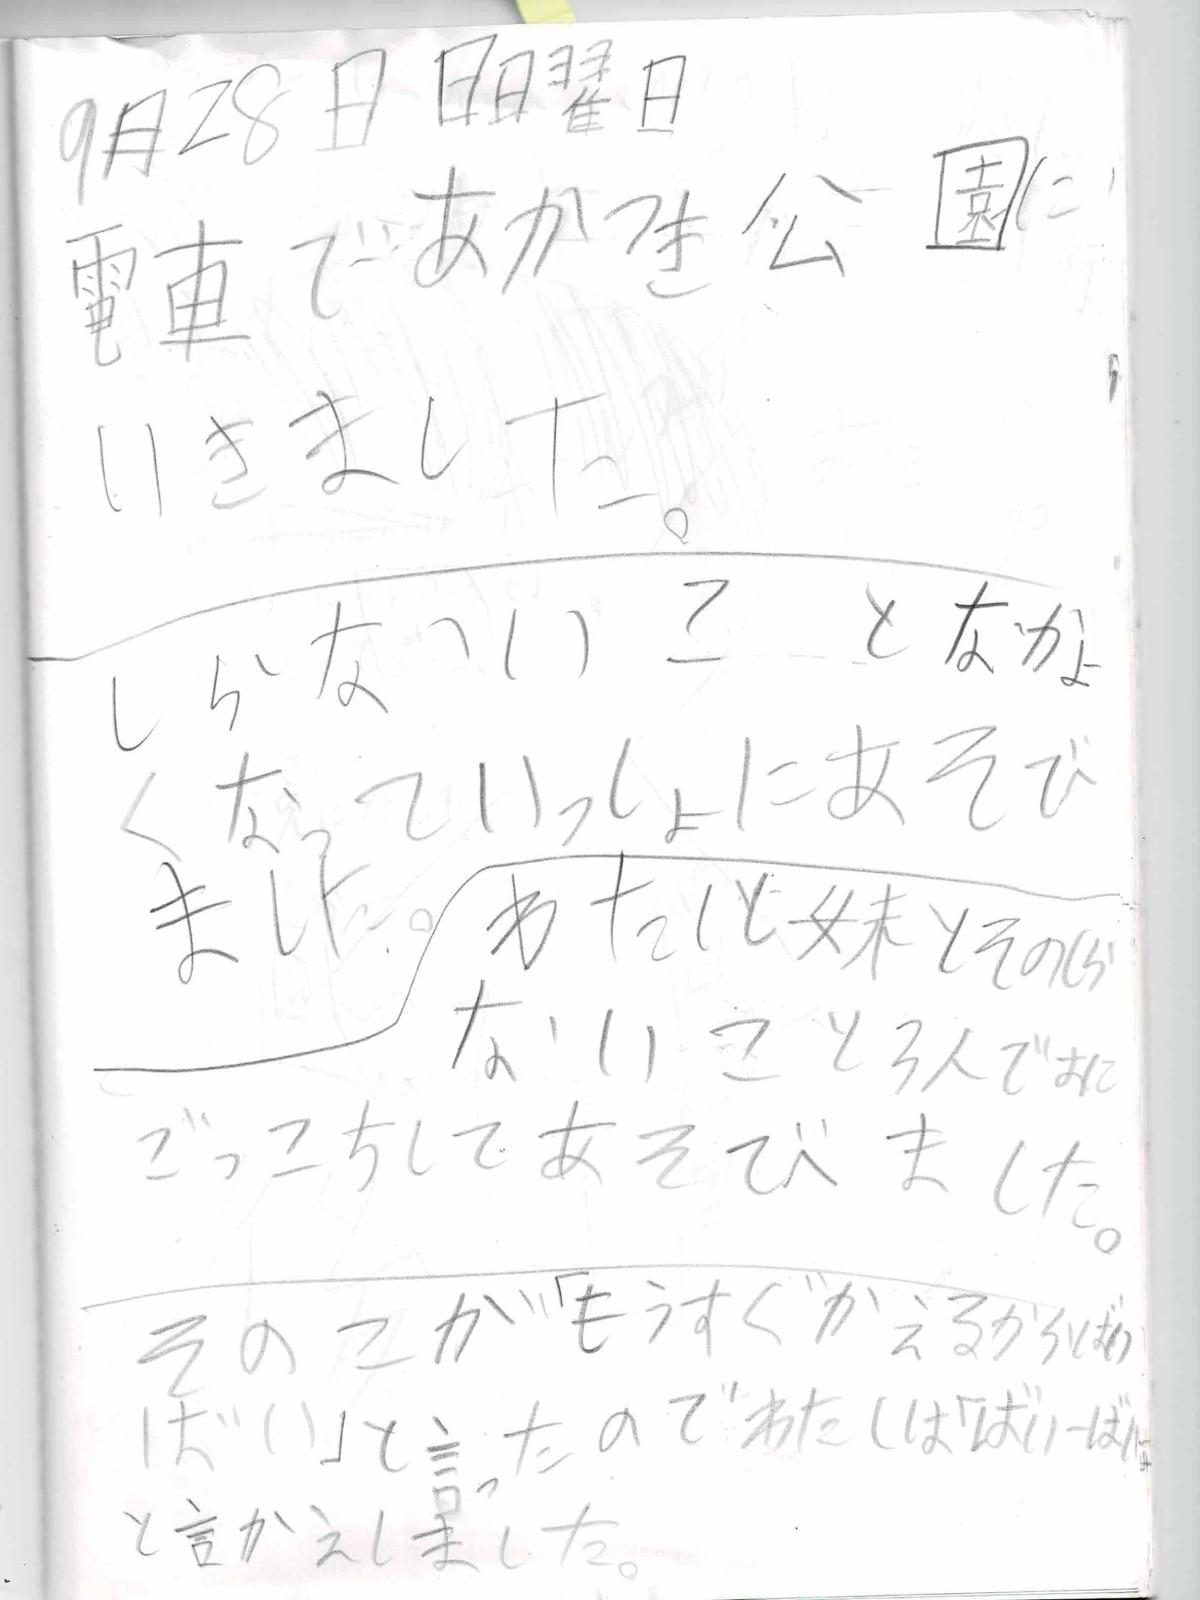 9月28日 日曜日
電車であかつき公園に
いきました。
しらないこ となかよ
くなっていっしょにあそび
ました。わたしと妹とそのしら
ないこと3人でおに
ごっこちしてあそびました。
そのこが「もうすぐかえるからばい
ばい」と言ったのでわたしは「ばいーばい
と言かえしました。